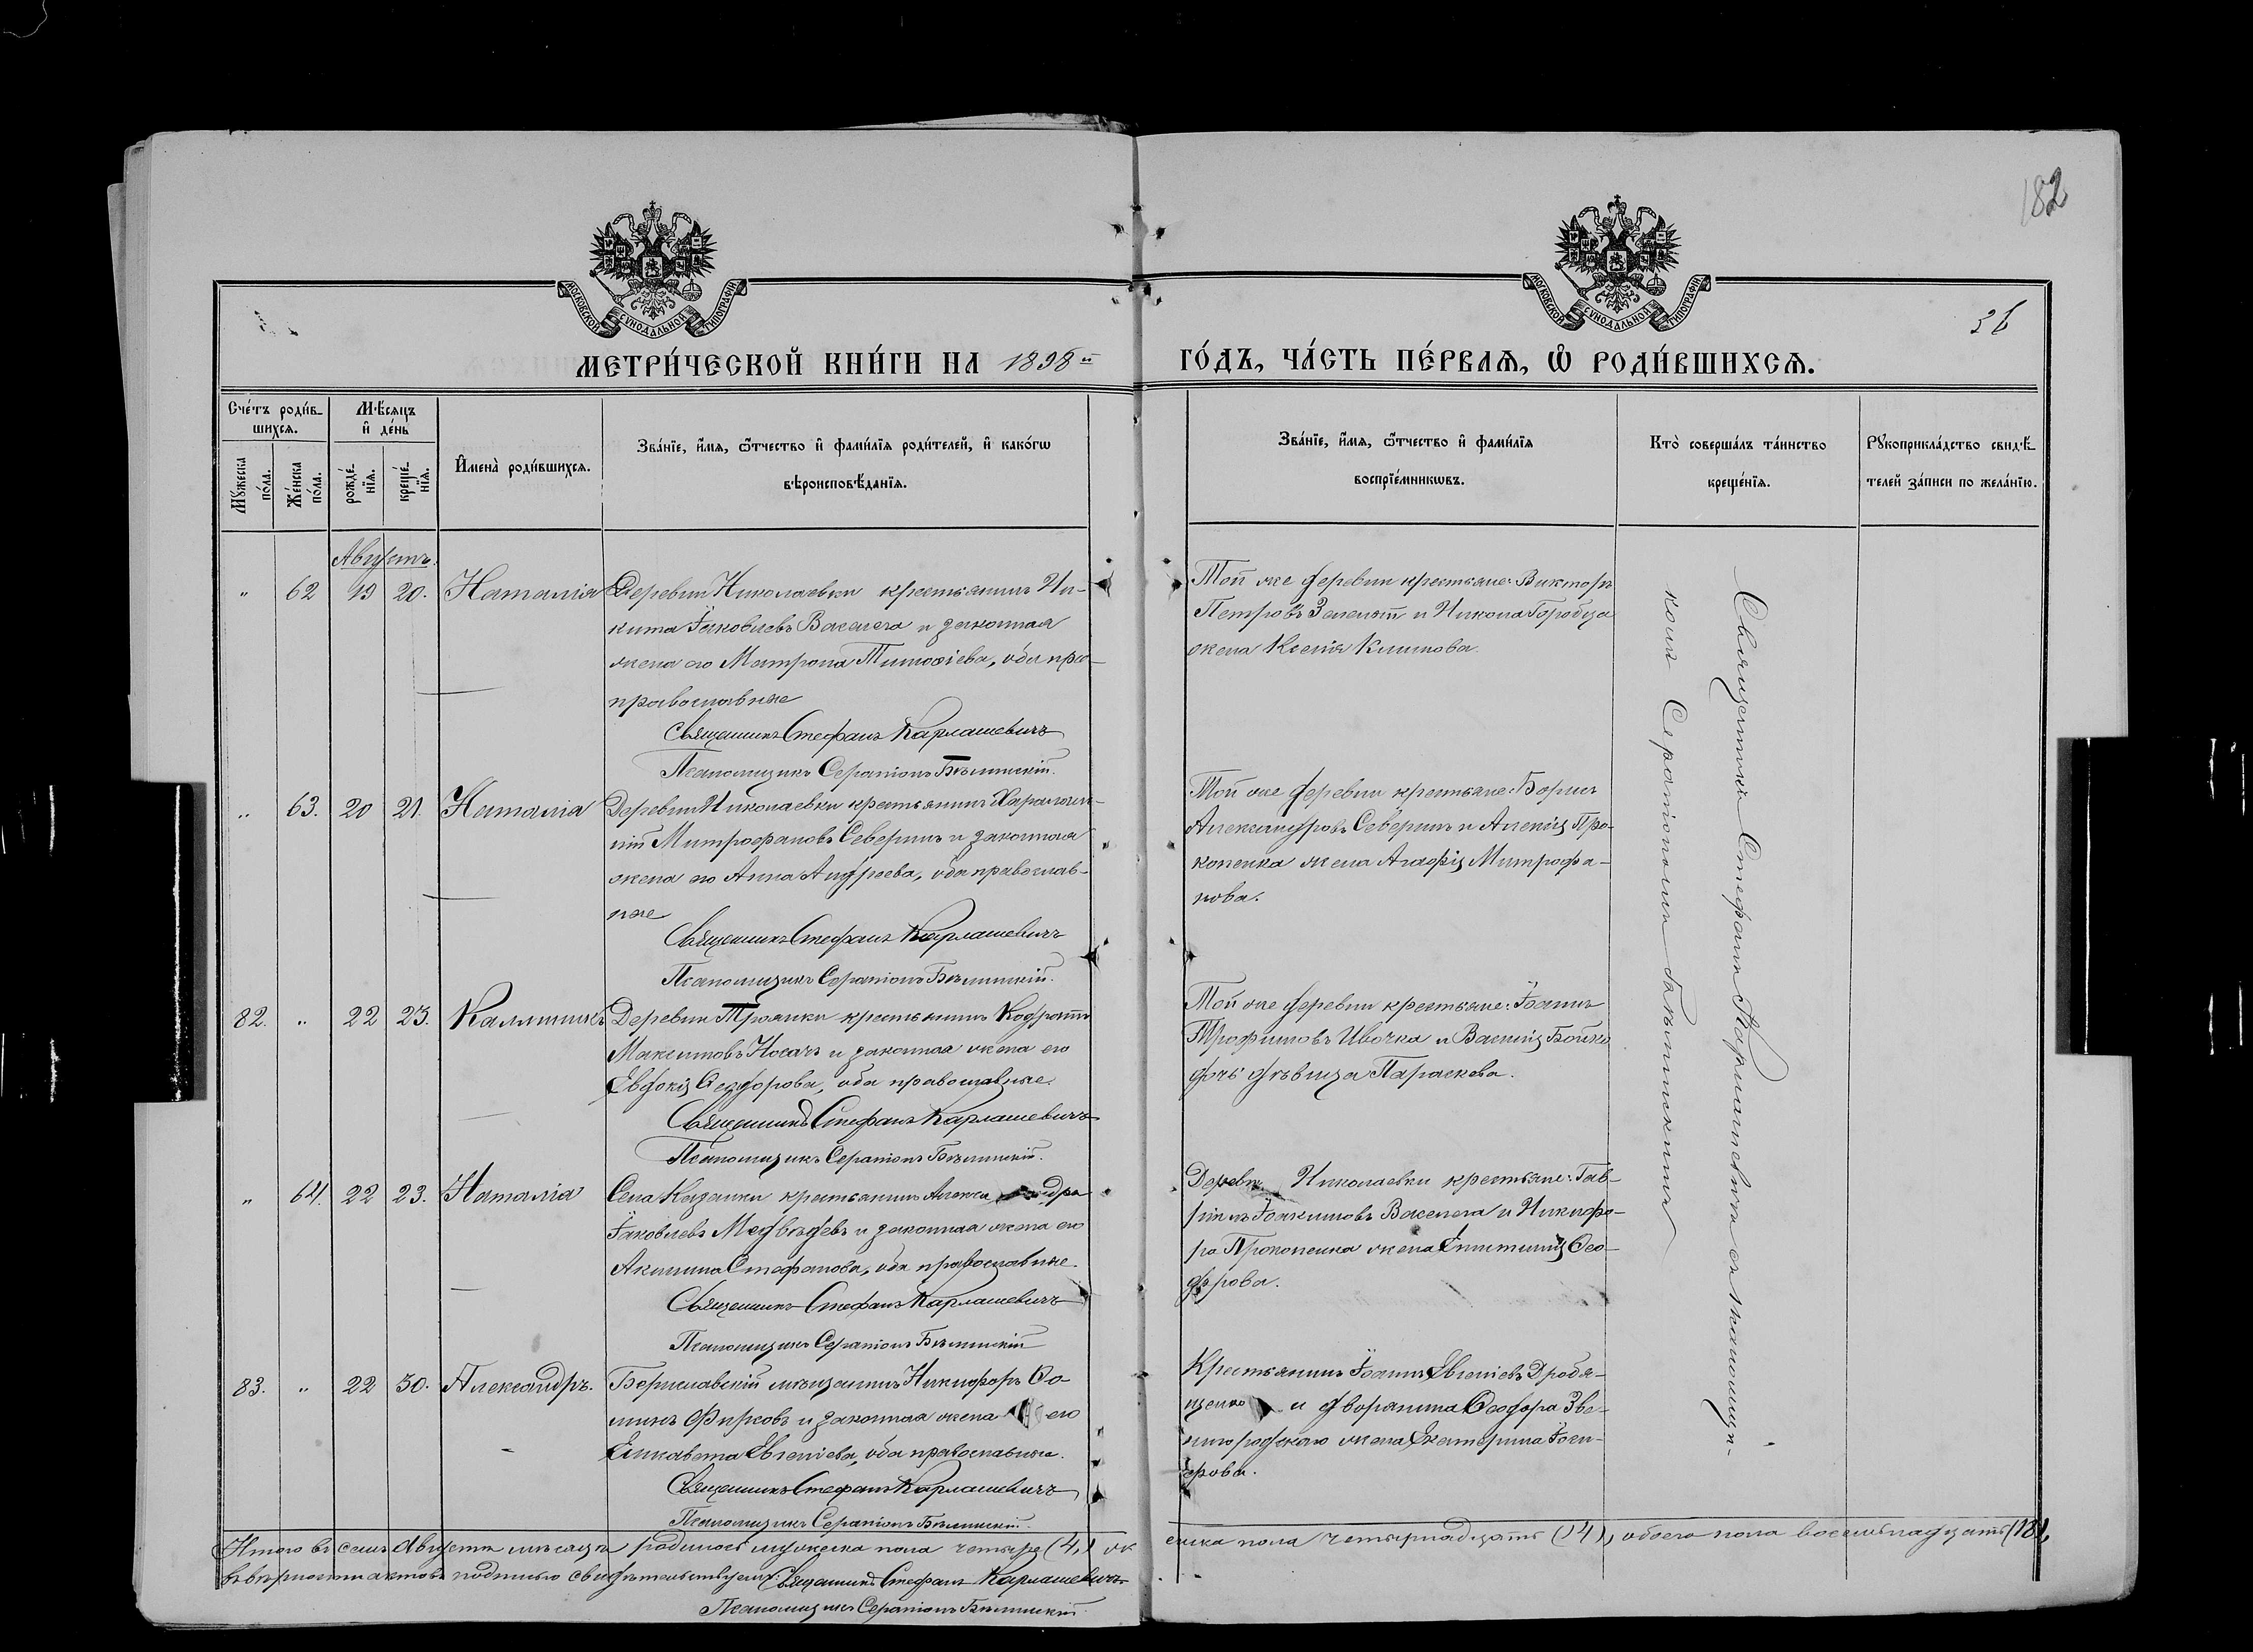 182
МОСКОВСКОЙ СѴНОДАЛЬНОЙ ТИПОГРАФІИ
МОСКОВСКОЙ СѴНОДАЛЬНОЙ ТИПОГРАФІИ
36
МЕТРИ́ЧЕСКОЙ КНИ́ГИ НА 1898й
ГО́ДЪ, ЧА́СТЬ ПЕ́РВАѦ, Ѡ҆ РОДИ́ВШИХСѦ.
Сче́тъ роди́в-
шихсѧ.
Мꙋжеска по́ла.
Же́нска по́ла.
Мѣ́сѧцъ
и҆ де́нь
рожде́-
нїѧ.
креще́-
нїѧ.
И҆мена̀ роди́вшихсѧ.
Зва́нїе, и҆́мѧ, ѻ҆́тчество и҆ фами́лїѧ роди́телей, и҆ како́гѡ
вѣроисповѣ́данїѧ.
Зва́нїе, и҆́мѧ, ѻ҆́тчество и҆ фами́лїѧ
воспрїе́мникѡвъ.
Кто̀ соверша́лъ та́инство
креще́нїѧ.
Рꙋкоприкла́дство свидѣ́-
телей за́писи по жела́нїю.
Августъ.
" 62 19 20. Наталія
Деревни Николаевки крестьянинъ Ни-
кита Іаковлевъ Васелега и законная
жена его Матрона Тимоѳіева, оба пра-
православные
Священникъ Стефанъ Карлашевичъ
Псаломщикъ Серапіонъ Бѣлинскій.
Той же деревни крестьяне: Викторъ
Петровъ и Никола Горобца
жена Ксенія Климова.
" 63. 20 21. Наталія
Деревни Николаевки крестьянинъ Харлам-
пій Митрофановъ Северинъ и законная
жена его Анна Андреева, оба православ-
ные
Священникъ Стефанъ Карлашевичъ
Псаломщикъ Серапіонъ Бѣлинскій.
Той же деревни крестьяне: Борисъ
Александровъ Северинъ и Алексія Про-
копенка жена Агафія Митрофа-
нова.
82. " 22 23. Каллиникъ
Деревни Троянки крестьянинъ Кодратъ
Максимовъ Носачъ и законная жена его
Евдокія Ѳеодорова, оба православные.
Священникъ Стефанъ Карлашевичъ
Псаломщикъ Серапіонъ Бѣлинскій.
Той же деревни крестьяне: Іоаннъ
Трофимовъ Ивочка и Василія Бойко
дочь дѣвица Параскева.
" 64. 22 23. Наталія
Села Казанки крестьянинъ
Іаковлевъ Медвѣдевъ и законная жена его
Акилина Стефанова, оба православные.
Священникъ Стефанъ Карлашевичъ
Псаломщикъ Серапіонъ Бѣлинскій
Деревни Николаевки крестьяне: Гав-
ріилъ Іоакимовъ Васелега и Никифо-
ра Прокопенка жена Ѳео-
дорова.
83. " 22 30. Александръ.
Бериславскій мѣщанинъ Никифоръ Ѳо-
минъ Фирковъ и законная жена его
Елисавета Евгеніева, оба православные.
Священникъ Стефанъ Карлашевичъ
Псаломщикъ Серапіонъ Бѣлинскій.
Крестьянинъ Іоаннъ Евгеніевъ Дробя-
щенко и дворянина Ѳеодора Зве-
нигородскаго жена Екатерина
рова.
Священникъ Стефанъ Карлашевичъ съ псаломщи-
комъ Серапіономъ Бѣлинскимъ
Итого въ семъ Августѣ мѣсяцѣ родилось мужеска пола четыре (4) же
нска пола четырнадцать (14), обоего пола восемьнадцать (18),
вѣрности актовъ подписью свидѣтельствуемъ: Священникъ Стефанъ Карлашевичъ
Псаломщикъ Серапіонъ Бѣлинскій